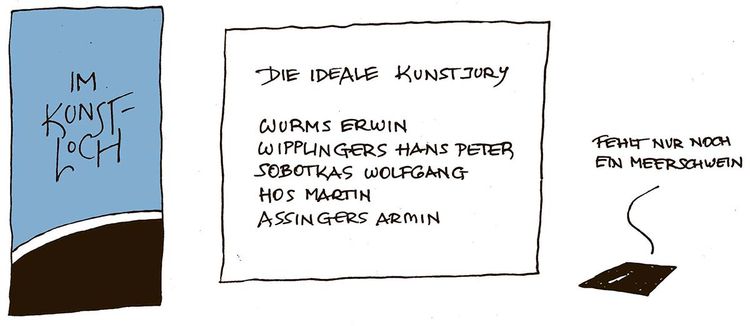 IM
KUNST=
LOCH
DIE IDEALE KUNSTJURY
WURMS ERWIN
WIPPLINGERS HANS PETER
SOBOTKAS WOLFGANG
HOS MARTIN
ASSINGERS ARMIN
FEHLT NUR NOCH
EIN MEERSCHWEIN